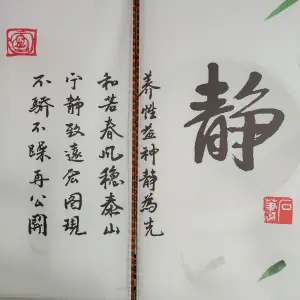 静
养性益神静為先
和若春风穩泰山
宁静致遠宏图現
不骄不躁再公關